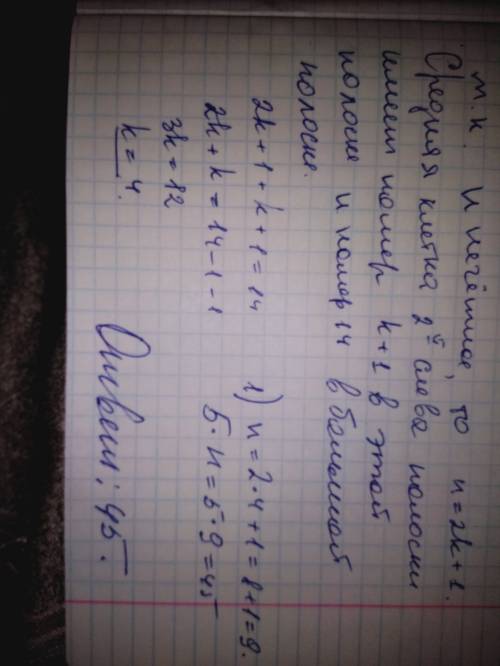 т.к. n нечётное, то n=2k+1.
Средняя клетка 2й слева полоски
имеет номер k+1 в этой
полоске и номер 14 в большой
полоске.
2k+1+k+1=14
2k+k=14-1-1
3k=12
k=4.
1) n=2·4+1=8+1=9.
5·n=5·9=45
Ответ: 45.